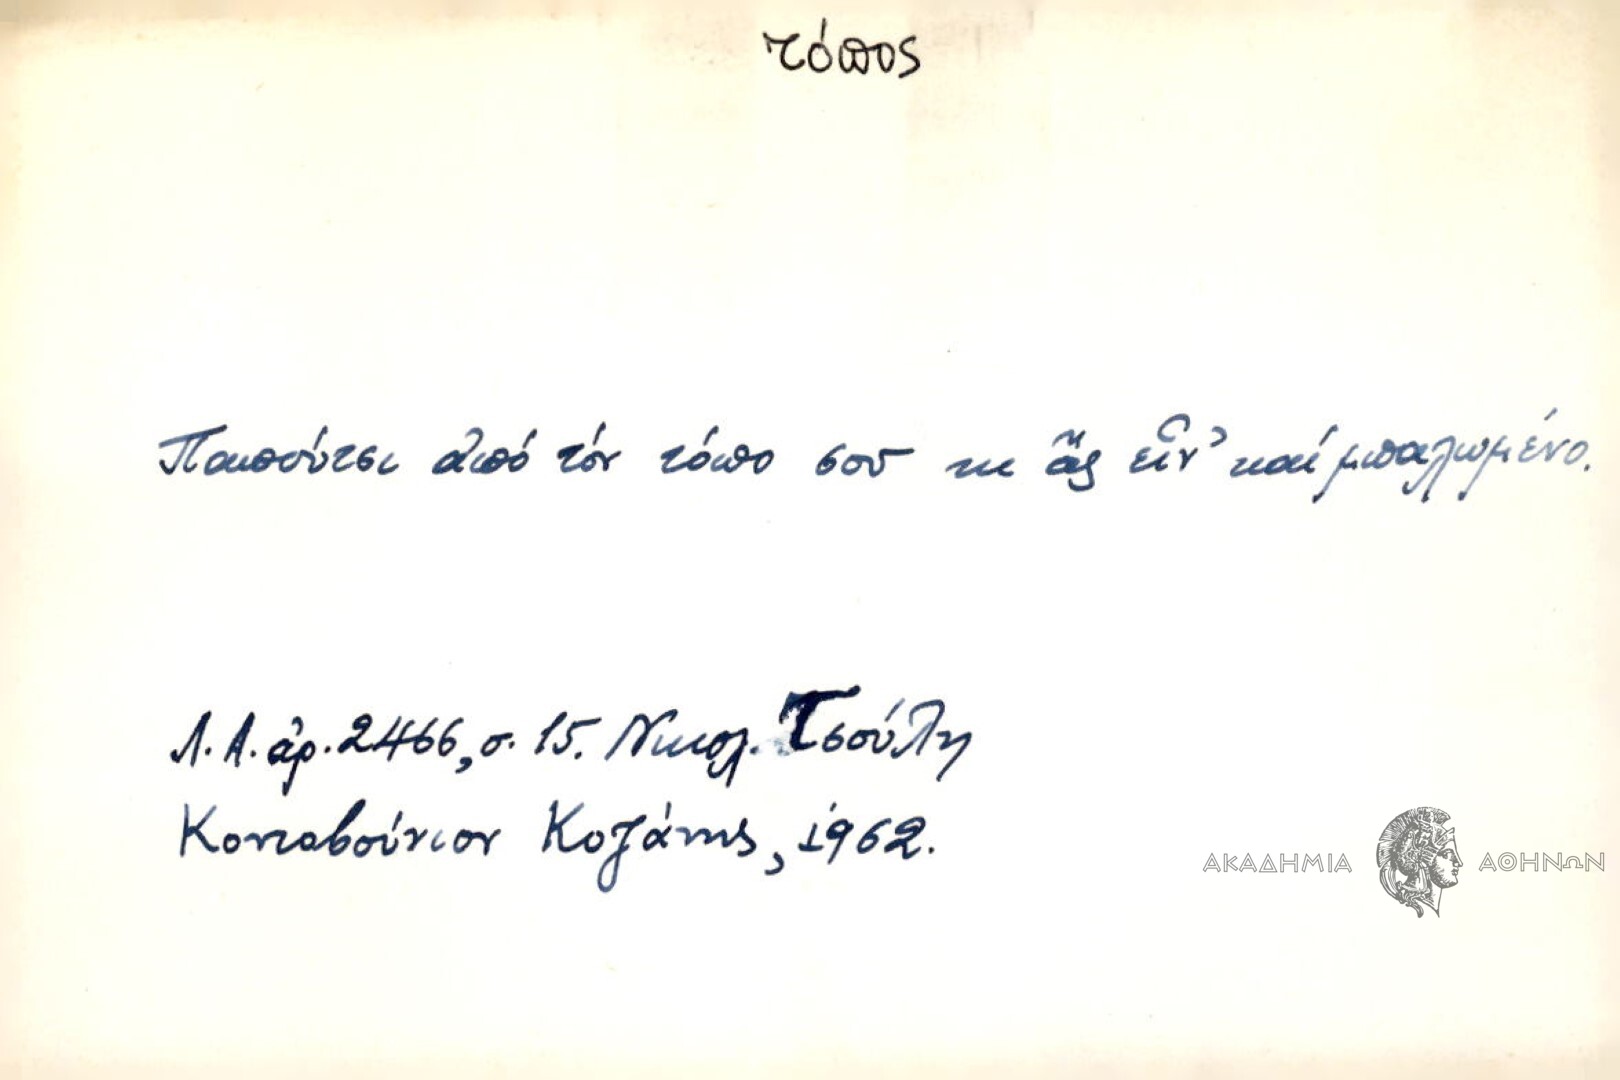 τόπος
Παπούτσι ἀπό τόν τόπο σου κι ἄς εἶν' καί μπαλωμένο.
Λ.Α. ἀρ. 2466, σ. 15. Νικολ. Τσούλη
Κοντοβούνιον Κοζάνης, 1962.
ΑΚΑΔΗΜΙΑ ΑΘΗΝΩΝ